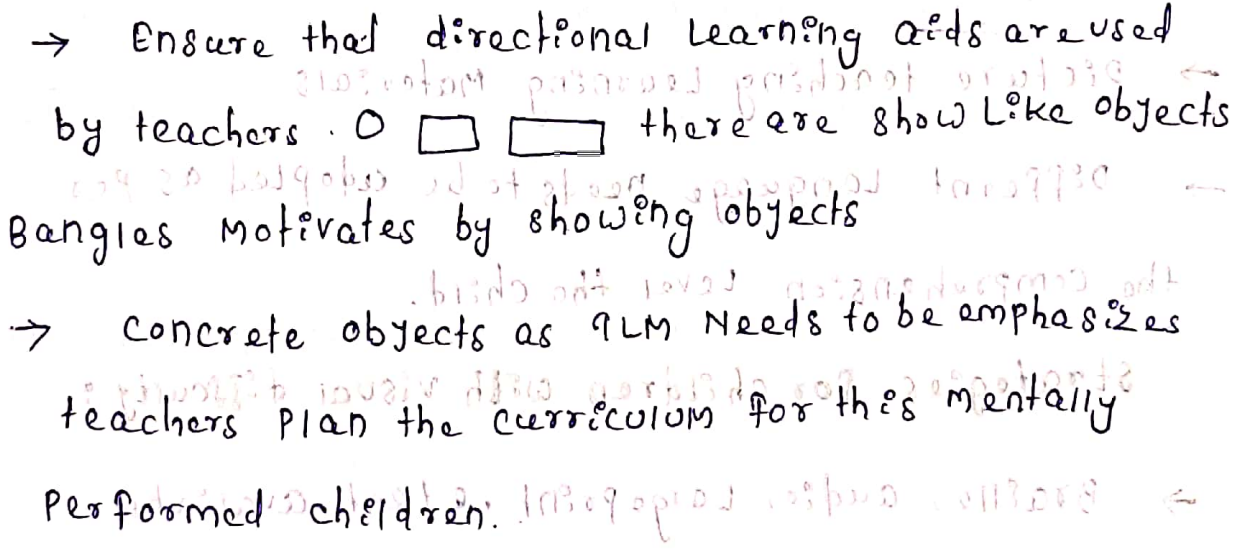 → Ensure that directional Learning aids are used
by teachers. O ▭ ▭ there are show Like objects
Bangles Motivates by showing objects
→ concrete objects as TLM Needs to be emphasizes
teachers Plan the curriculum for this mentally
Performed children.